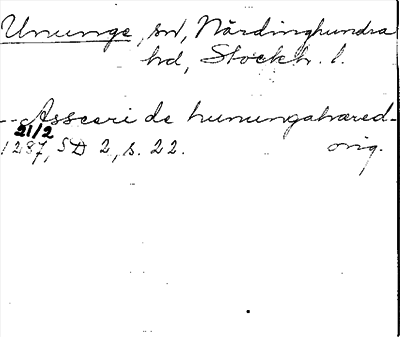 Ununge, sn, Närdinghundra
hd, Stockh. l.
-- Asceri de hunungahæred-
21/2
1287, SD 2, s. 22. orig.